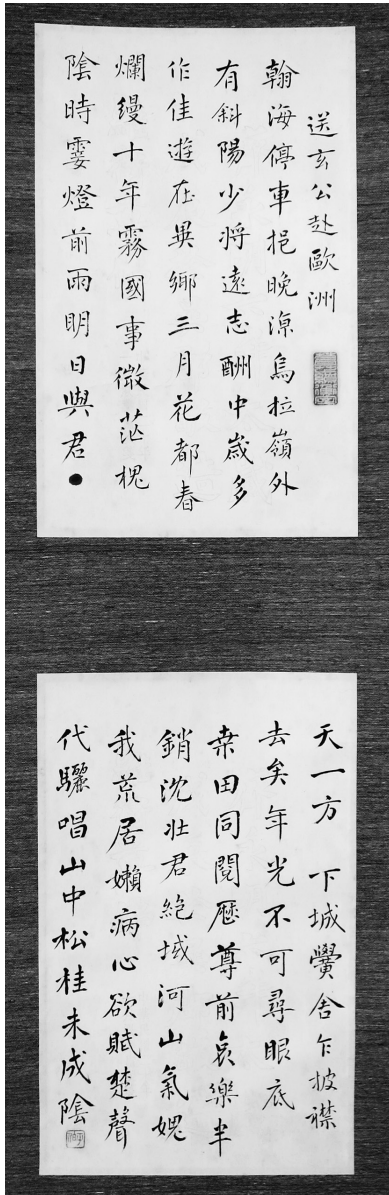 送玄公赴歐洲
翰海停車挹晚涼烏拉嶺外
有斜陽少將遠志酬中歲多
作佳遊在異鄉三月花都春
爛縵十年霧國事微茫槐
陰時霎燈前雨明日與君●
天一方 下城黌舍乍披襟
去矣年光不可尋眼底
桒田同閱歷尊前哀樂半
銷沈壯君絕域河山氣媿
我荒居嬾病心欲賦楚聲
代驪唱山中松桂未成陰